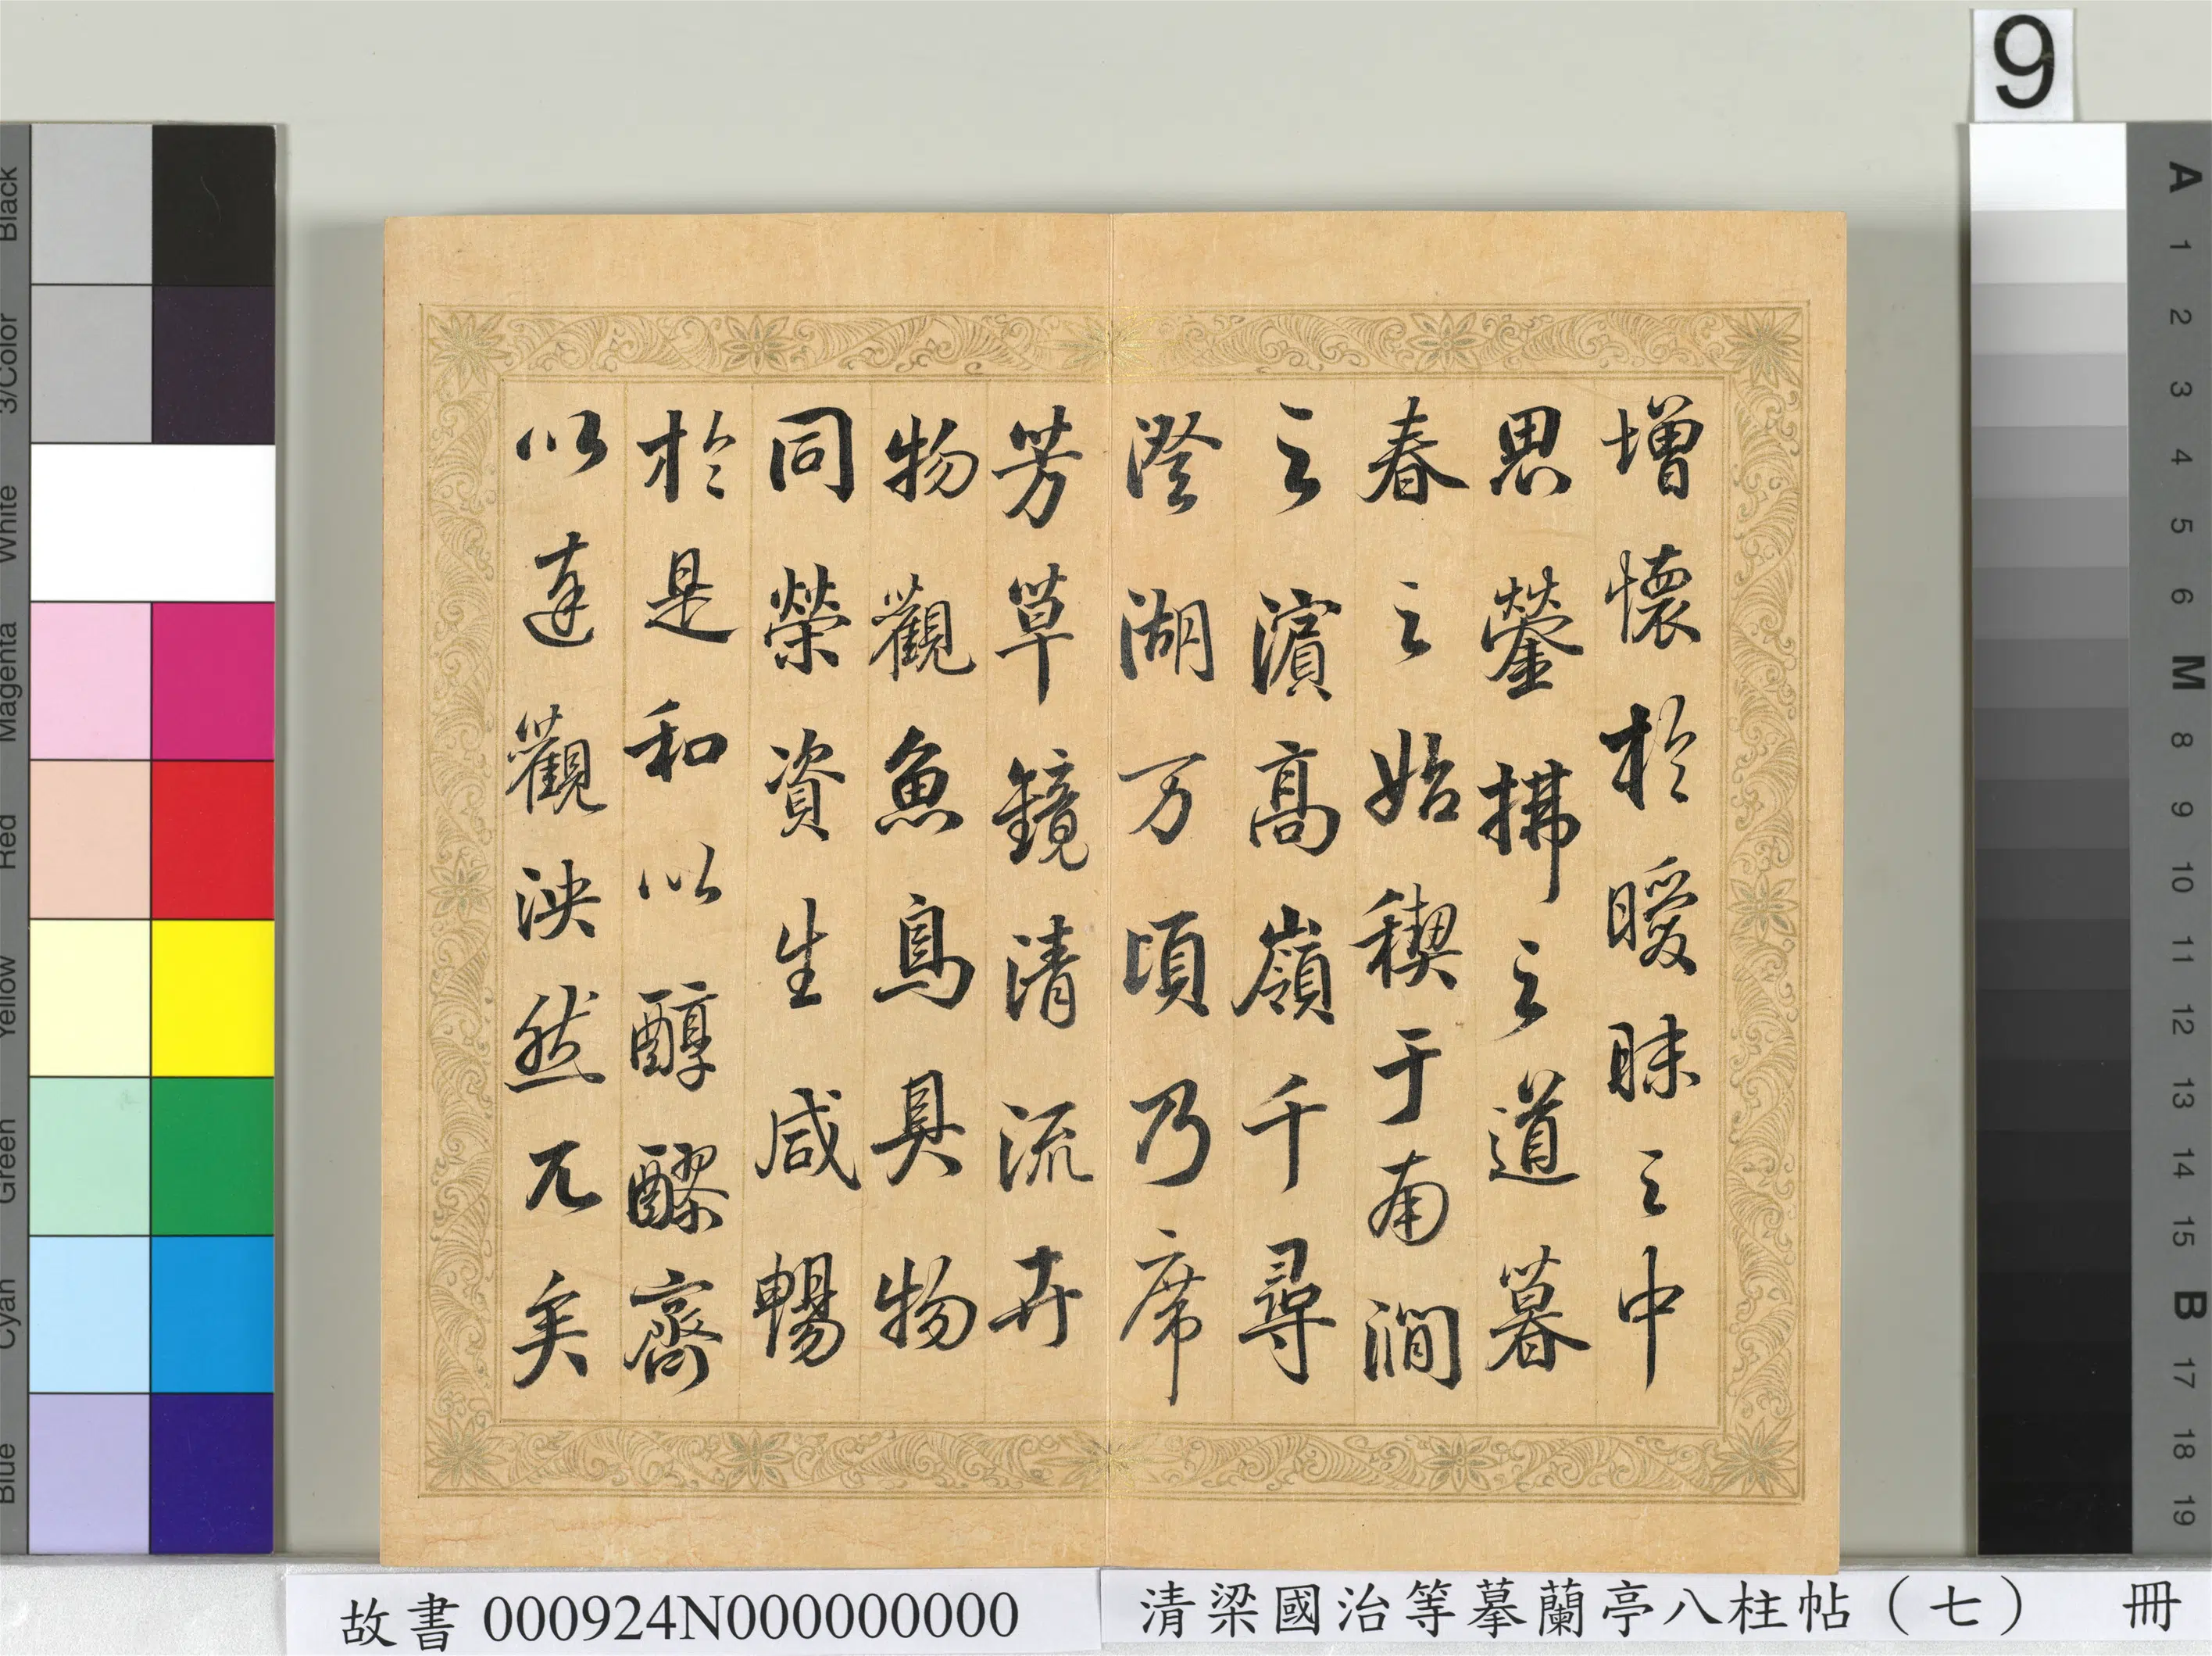 增懷於曖昧之中
思鎣拂之道暮
春之始稧于南澗
之濱高嶺千尋
澄湖万頃乃席
芳草鏡清流卉
物觀魚鳥具物
同榮資生咸暢
於是和以醇醪齊
以達觀泱然兀矣
9
A 1 2 3 4 5 6 M 8 9 10 11 12 13 14 15 B 17 18 19
Black
3/Color
White
Magenta
Red
Yellow
Green
Cyan
Blue
故書 000924N000000000
清梁國治等摹蘭亭八柱帖（七） 冊